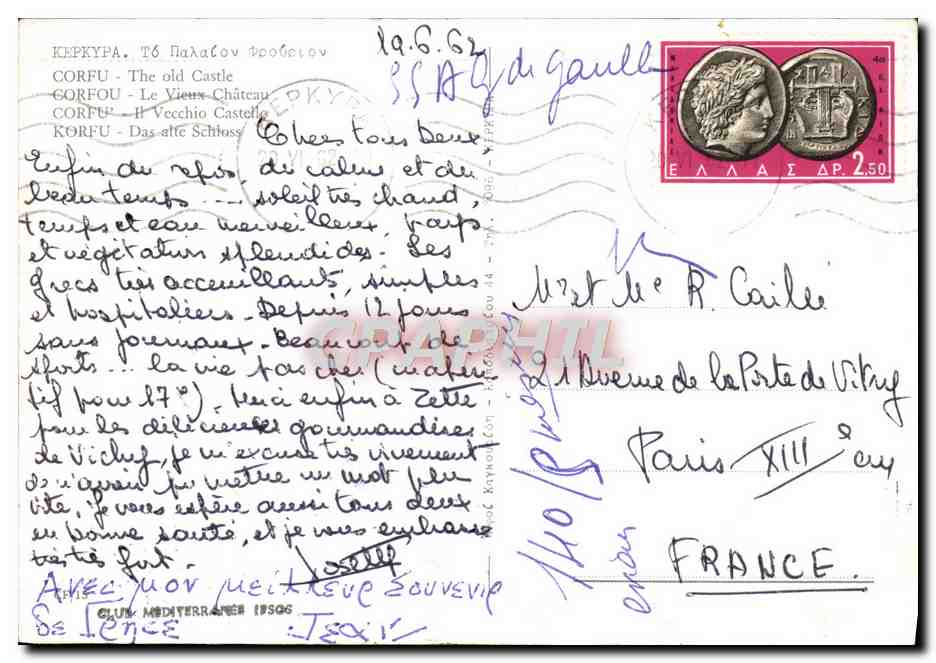 ΚΕΡΚΥΡΑ. Τό Παλαιόν Φρούριον
CORFU - The old Castle
CORFOU - Le Vieux Château
CORFU' - Il Vecchio Castello
KORFU - Das alte Schloss
19.6.62
55 de gaulle
Chers tous deux,
Enfin du repos, du calme et du
beau temps ... soleil très chaud,
temps et eau merveilleux, parfs
et végétation splendides. Les
grecs très acceuillants, simples
et hospitaliers. Depuis 12 jours
sans journaux. Beaucoup de
sports ... la vie pas cher (
pour 17). Merci enfin à Zette
pour les délicieuses gourmandises
de Vichy, je m'excuse très vivement
de n'avoir pu mettre un mot plus
vite, je vous espère aussi tous deux
en bonne santé, et je vous embrasse
très très fort. Josette
Αvες μον μείλλευρ Σουvεvιρ
δε Γρηcε Jεαν
CLUB MEDITERRANEE IPSOS
ΕΛΛΑΣ ΔΡ. 2,50
ΚΕΡΚΥΡΑ
Mr et Me R. Caillé
21 Avenue de la Porte de Vitry
Paris XIII e
FRANCE.
CRAPHIL
140/